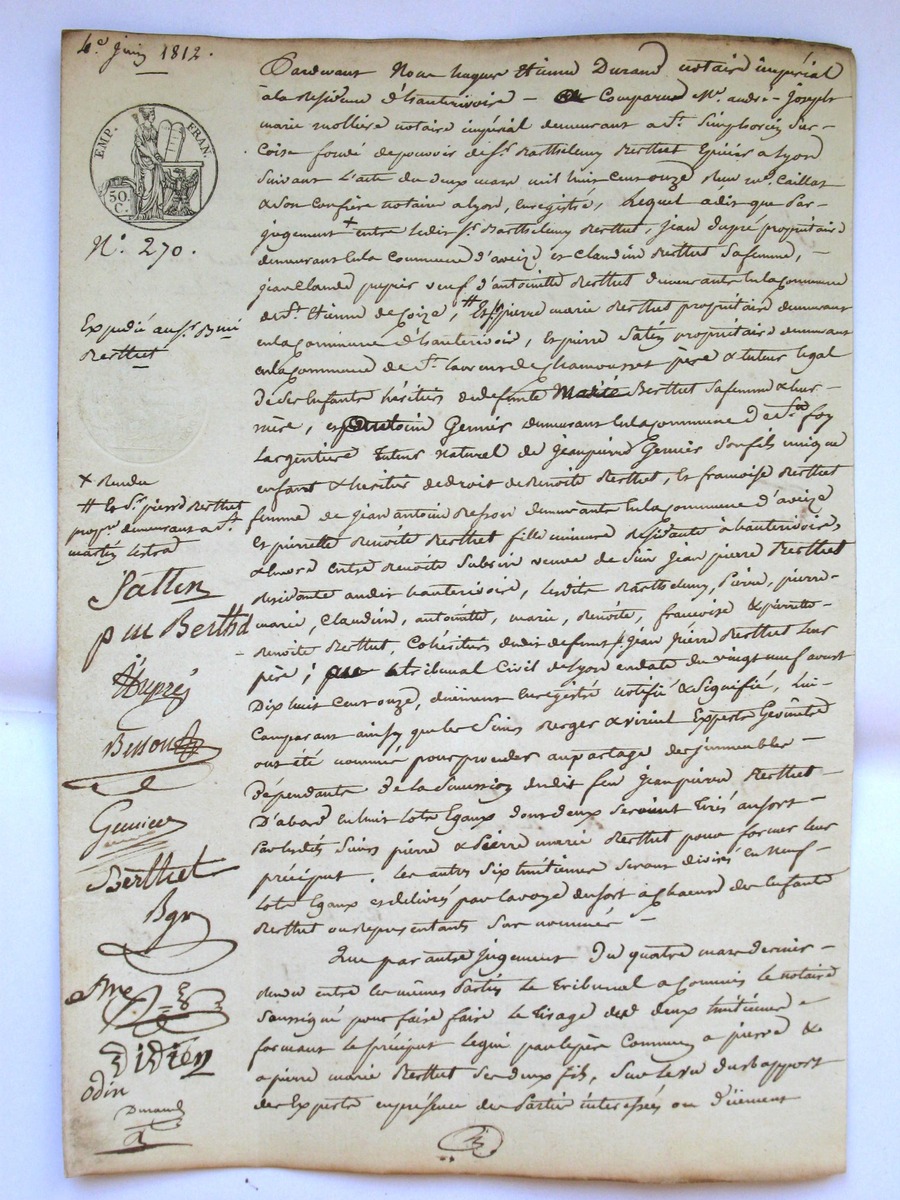 4e Juin 1812.
EMP. FRAN.
50. C.
N.° 270.
Expédié au Sr
Berthet
+ Rendu
# le Sr. pierre Berthet
propre. demeurant a St.
martin lestra
Sattin
p m Berthet
Dupré
Besson
Genier
Berthet
Bgr
Didien
odin
Durand
Pardevant Nous Etienne Durand notaire impérial
à la Résidence d'hauterivoire – Comparu Mr. andré-Joseph
marie notaire impérial demeurant a St. Simphorien Sur-
Coise fondé de pouvoir de Sr. Barthelemy Berthet Epicier a Lyon
Suivant l'acte du deux mars mil huit cent onze Reçu me. Caillat
& Son Confrère notaire a Lyon, enregistré, Lequel a dit que Par
jugement + entre ledit Sr. Barthelemy Berthet, jean dupré propriétaire
demeurant en la Commune d'aveize et Claudine Berthet Sa femme, –
jean Claude pupier veuf d'antoinette Berthet demeurant en la Commune
de St. Etienne de Coize, # Et pierre marie Berthet propriétaire demeurant
en la Commune d'hauterivoire, et pierre Satin propriétaire demeurant
en la Commune de St. laurent de Chamousset père & tuteur légal
de Ses Enfants héritiers de defunte Marie Berthet Sa femme & leur –
mère, et antoine Genier demeurant en la Commune de Ste foy
Largentiere tuteur naturel de jean pierre Genier Son fils unique
enfant & héritier de droit de Benoite Berthet, et francoise Berthet
femme de jean antoine Besson demeurante en la Commune d'aveize
et pierrette Benoite Berthet fille mineure Résidante à hauterivoire
& encore entre Benoite Subrin veuve de feu jean pierre Berthet
Résidante audit hauterivoire, lesdits Barthelemy, Pierre, pierre-
marie, Claudine, antoinette, marie, Benoite, francoise & pierrette –
Benoite Berthet, Cohéritiers dudit defunt Sr. jean pierre Berthet leur
père; au tribunal Civil de Lyon en date du vingt neuf aoust
Dix huit Cent onze, duement enregistré notifié & Signifié, Lui-
Comparant ainsy que les Sieurs Berger & viriot Experts Géomètre
ont été nommés pour proceder au partage des immeubles –
Dépendants de la Succession dudit feu jean pierre Berthet –
D'abord en huit lots Egaux dont deux Seraient tirés au sort –
Par lesdits Sieurs pierre & Pierre marie Berthet pour former leur
préciput, les autres Six huitièmes Seront divisés en neuf –
lots Egaux et délivrés par la voye du sort à Chacun des Enfants
Berthet ou representants Sus nommés –
Que par autre jugement Du quatre mars dernier –
Rendu entre les mêmes Parties le Tribunal a Commis le notaire
Soussigné pour faire faire le tirage des deux huitièmes –
formant le préciput legué par le père Commun a pierre &
a pierre marie Berthet Ses deux fils, Sur le vu du rapport
des Experts en présence des Parties interessées ou duement